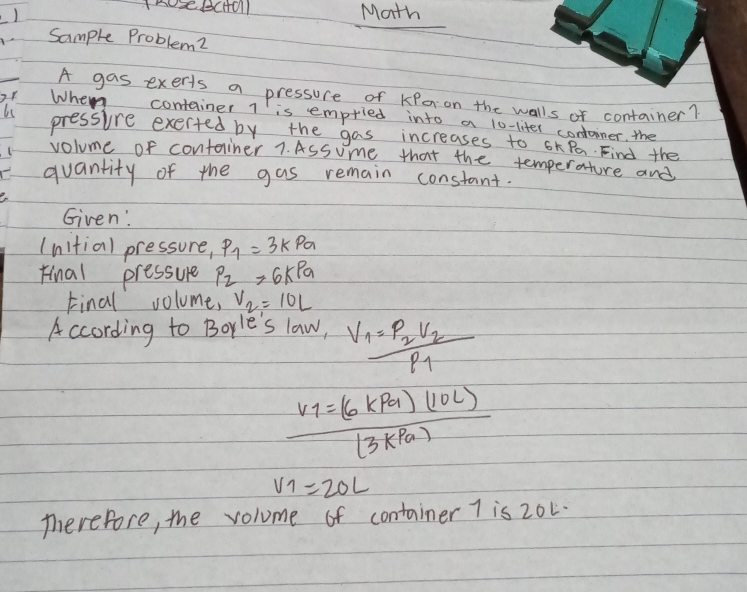 Math
Sample Problem 2
A gas exerts a pressure of KPa on the walls of container 1
When container 1 is emptied into a 10-liter container, the
pressure exerted by the gas increases to 6KPa. Find the
volume of container 1. Assume that the temperature and
quantity of the gas remain constant.
Given:
Initial pressure, P1 = 3KPa
Final pressure P2 = 6KPa
Final volume, V2 = 10L
According to Boyle's law, V1 = P2 V2
P1
V1 = (6 KPa) (10L)
(3KPa)
V1 = 20L
Therefore, the volume of container 1 is 20L.